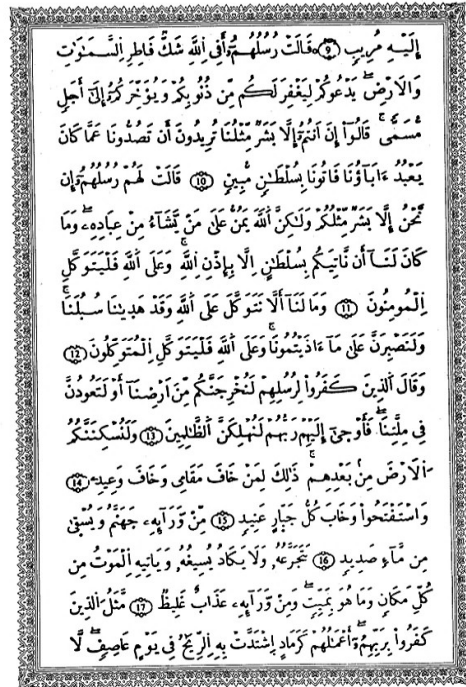 إِلَيْهِ مُرِيبٍ 9 قَالَتْ رُسُلُهُمُۥٓ أَفِے اِ۬للَّهِ شَكّٞ فَاطِرِ اِ۬لسَّمَٰوَٰتِ
وَالَارْضِۖ يَدْعُوكُمْ لِيَغْفِرَ لَكُم مِّن ذُنُوبِكُمْ وَيُؤَخِّرَكُمُۥٓ إِلَىٰٓ أَجَلٖ
مُّسَمّٗىۖ قَالُوٓا۟ إِنَ اَنتُمُۥٓ إِلَّا بَشَرٞ مِّثْلُنَا تُرِيدُونَ أَن تَصُدُّونَا عَمَّا كَانَ
يَعْبُدُ ءَابَآؤُنَا فَاتُونَا بِسُلْطَٰنٖ مُّبِينٖ 10 قَالَتْ لَهُمْ رُسُلُهُمُۥٓ إِن
نَّحْنُ إِلَّا بَشَرٞ مِّثْلُكُمْ وَلَٰكِنَّ اَ۬للَّهَ يَمُنُّ عَلَىٰ مَنْ يَّشَآءُ مِنْ عِبَادِهِۦۖ وَمَا
كَانَ لَنَآ أَن نَّاتِيَكُم بِسُلْطَٰنٍ اِلَّا بِإِذْنِ اِ۬للَّهِۖ وَعَلَى اَ۬للَّهِ فَلْيَتَوَكَّلِ
اِ۬لْمُومِنُونَ 11 وَمَا لَنَآ أَلَّا نَتَوَكَّلَ عَلَى اَ۬للَّهِ وَقَدْ هَدَىٰنَا سُبُلَنَاۖ
وَلَنَصْبِرَنَّ عَلَىٰ مَآ ءَاذَيْتُمُونَاۖ وَعَلَى اَ۬للَّهِ فَلْيَتَوَكَّلِ اِ۬لْمُتَوَكِّلُونَ 12
وَقَالَ اَ۬لذِينَ كَفَرُوا۟ لِرُسُلِهِمْ لَنُخْرِجَنَّكُم مِّنَ اَرْضِنَآ أَوْ لَتَعُودُنَّ
فِے مِلَّتِنَاۖ فَأَوْح۪ىٰٓ إِلَيْهِمْ رَبُّهُمْ لَنُهْلِكَنَّ اَ۬لظَّٰلِمِينَ 13 وَلَنُسْكِنَنَّكُمُ
اُ۬لَارْضَ مِنۢ بَعْدِهِمْۖ ذَٰلِكَ لِمَنْ خَافَ مَقَامِے وَخَافَ وَعِيدِۦ 14
وَاسْتَفْتَحُوا۟ وَخَابَ كُلُّ جَبَّارٍ عَنِيدٖ 15 مِّنْ وَّرَآئِهِۦ جَهَنَّمُ وَيُسْق۪ىٰ
مِن مَّآءٖ صَدِيدٖ 16 يَتَجَرَّعُهُۥ وَلَا يَكَادُ يُسِيغُهُۥ وَيَاتِيهِ اِ۬لْمَوْتُ مِن
كُلِّ مَكَانٖ وَمَا هُوَ بِمَيِّتٖۖ وَمِنْ وَّرَآئِهِۦ عَذَابٌ غَلِيظٞ 17 مَّثَلُ اُ۬لذِينَ
كَفَرُوا۟ بِرَبِّهِمُۥٓ أَعْمَٰلُهُمْ كَرَمَادٍ اِ۪شْتَدَّتْ بِهِ اِ۬لرِّيَٰحُ فِے يَوْمٍ عَاصِفٖۖ لَّا